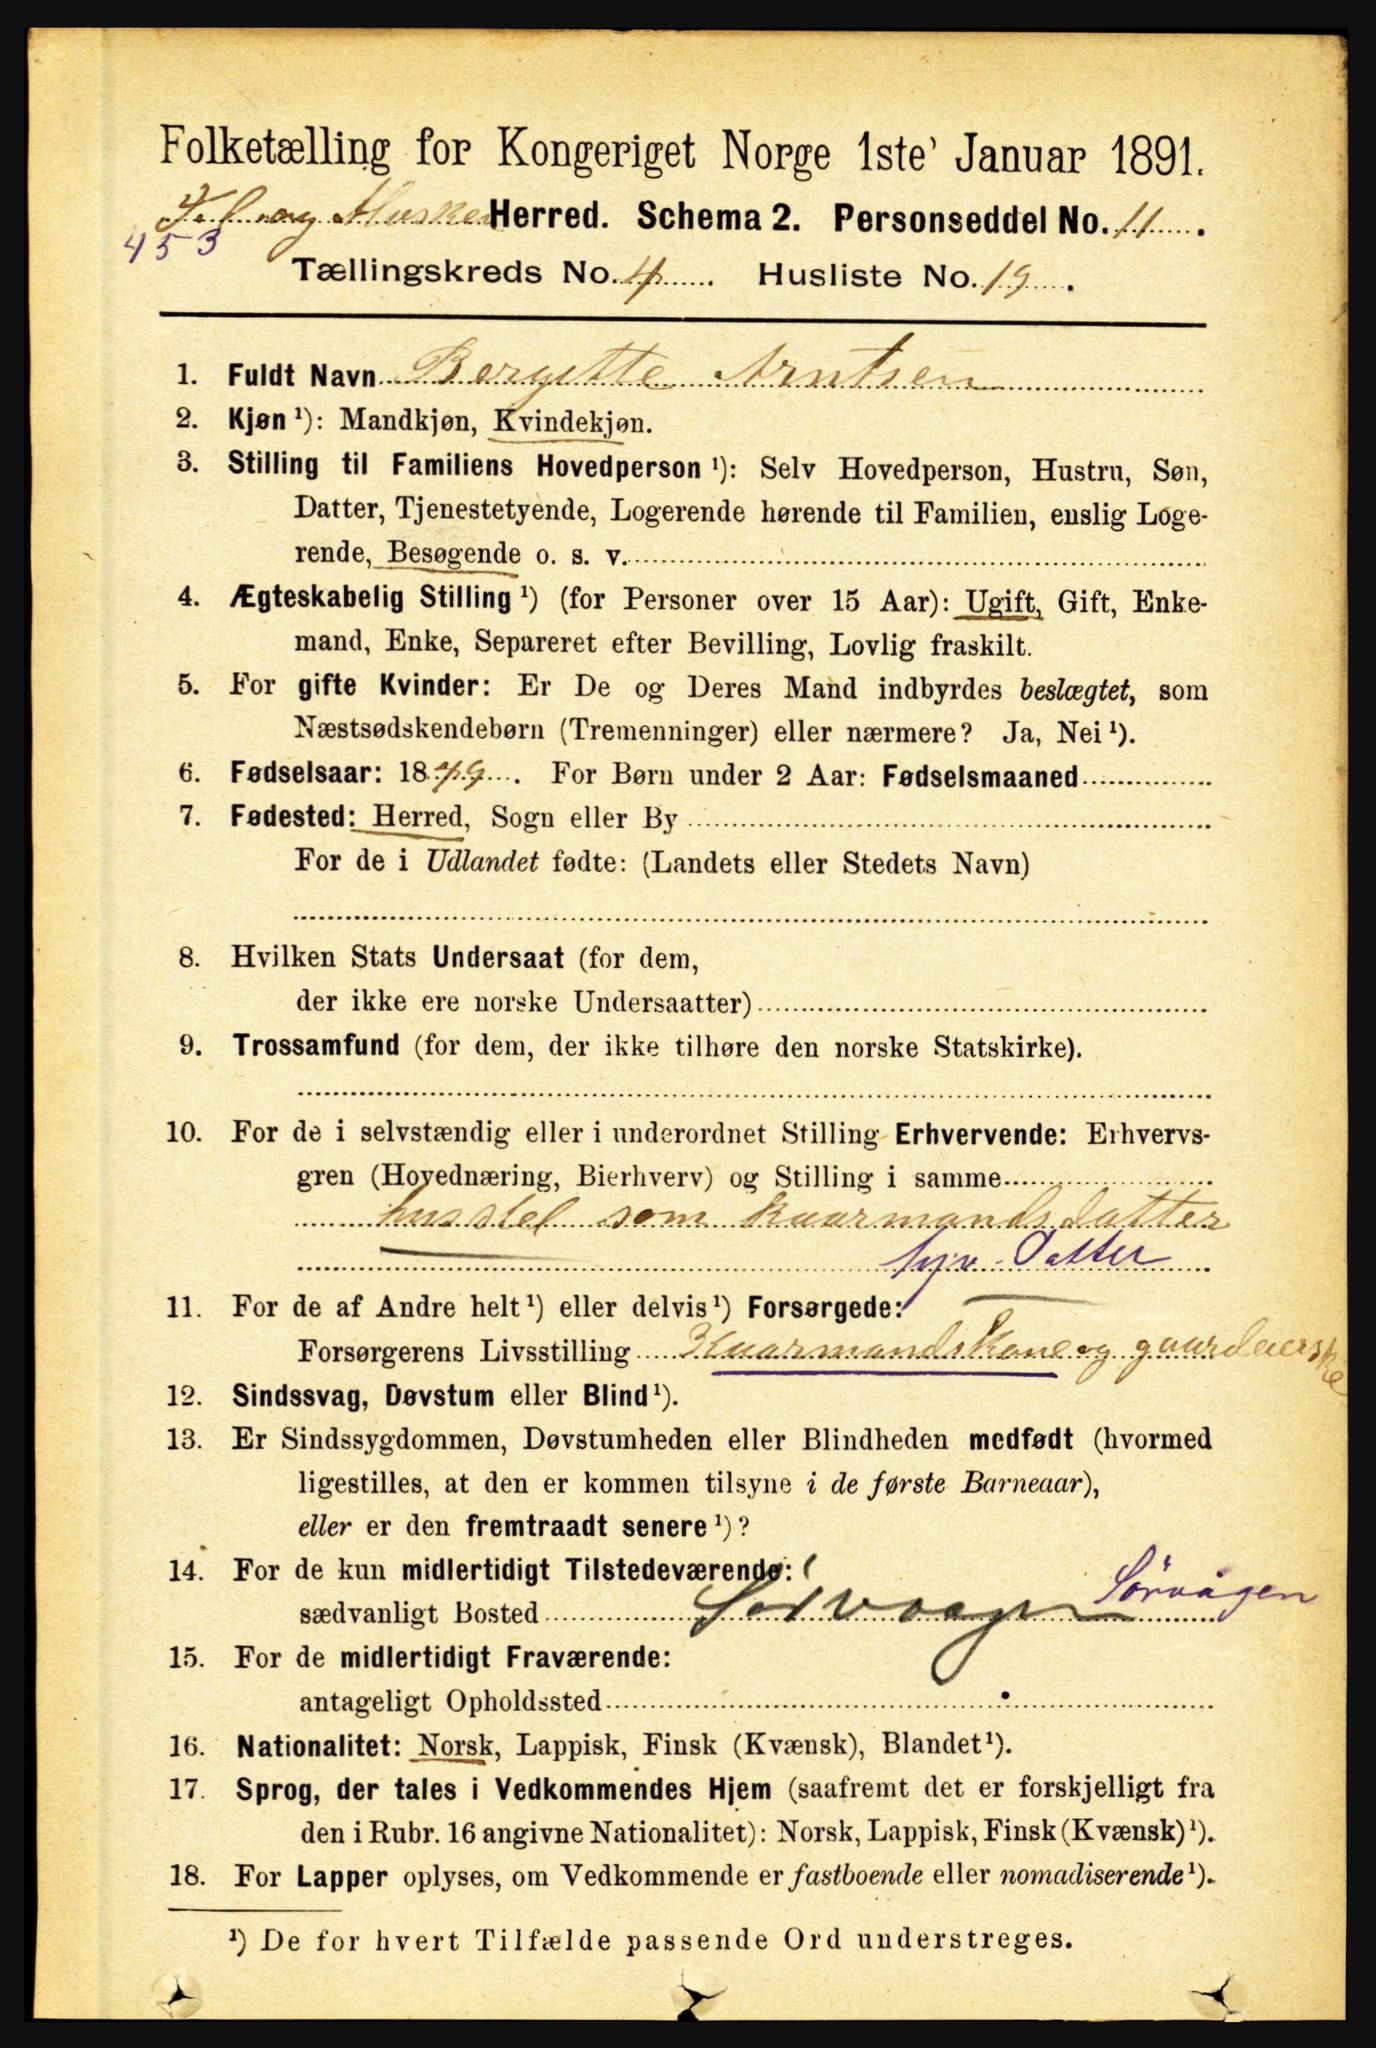 Folketælling for Kongeriget Norge 1ste Januar 1891.
Fl. og Mosken Herred. Schema 2. Personseddel No. 11.
453
Tællingskreds No. 4. Husliste No. 19.
1. Fuldt Navn Bergitte Arntsen
2. Kjøn ¹): Mandkjøn, Kvindekjøn.
3. Stilling til Familiens Hovedperson ¹): Selv Hovedperson, Hustru, Søn,
Datter, Tjenestetyende, Logerende hørende til Familien, enslig Loge-
rende, Besøgende o. s. v.
4. Ægteskabelig Stilling ¹) (for Personer over 15 Aar): Ugift, Gift, Enke-
mand, Enke, Separeret efter Bevilling, Lovlig fraskilt.
5. For gifte Kvinder: Er De og Deres Mand indbyrdes beslægtet, som
Næstsødskendebørn (Tremenninger) eller nærmere? Ja, Nei ¹).
6. Fødselsaar: 1849. For Børn under 2 Aar: Fødselsmaaned
7. Fødested: Herred, Sogn eller By
For de i Udlandet fødte: (Landets eller Stedets Navn)
8. Hvilken Stats Undersaat (for dem,
der ikke ere norske Undersaatter)
9. Trossamfund (for dem, der ikke tilhøre den norske Statskirke).
10. For de i selvstændig eller i underordnet Stilling Erhvervende: Erhvervs-
gren (Hovednæring, Bierhverv) og Stilling i samme
husstel som kaarmandsdatter
Datter
11. For de af Andre helt ¹) eller delvis ¹) Forsørgede:
Forsørgerens Livsstilling Kaarmandskone og gaardeierske
12. Sindssvag, Døvstum eller Blind ¹).
13. Er Sindssygdommen, Døvstumheden eller Blindheden medfødt (hvormed
ligestilles, at den er kommen tilsyne i de første Barneaar),
eller er den fremtraadt senere ¹)?
14. For de kun midlertidigt Tilstedeværende:
sædvanligt Bosted Sørvaagen Sörvågen
15. For de midlertidigt Fraværende:
antageligt Opholdssted
16. Nationalitet: Norsk, Lappisk, Finsk (Kvænsk), Blandet ¹).
17. Sprog, der tales i Vedkommendes Hjem (saafremt det er forskjelligt fra
den i Rubr. 16 angivne Nationalitet): Norsk, Lappisk, Finsk (Kvænsk) ¹).
18. For Lapper oplyses, om Vedkommende er fastboende eller nomadiserende ¹).
¹) De for hvert Tilfælde passende Ord understreges.